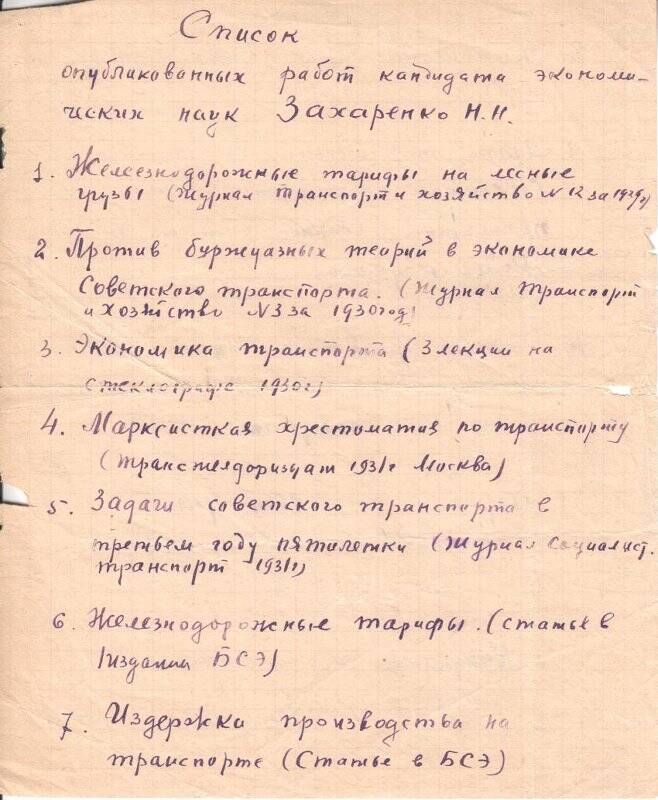 Список
опубликованных работ кандидата экономи-
ческих наук Захаренко Н.Н.
1. Железнодорожные тарифы на лесные
грузы (Журнал транспорт и хозяйство N 12 за 1929г)
2. Против буржуазных теорий в экономике
Советского транспорта. (Журнал транспорт
и хозяйство N 3 за 1930год)
3. Экономика транспорта (3 лекции на
стеклографе 1930г)
4. Марксисткая хрестоматия по транспорту
(Трансжелдориздат 1931г Москва)
5. Задачи советского транспорта в
третьем году пятилетки (Журнал Социалист.
транспорт 1931г)
6. Железнодорожные тарифы. (статье в
издании БСЭ)
7. Издержки производства на
транспорте (Статье в БСЭ)